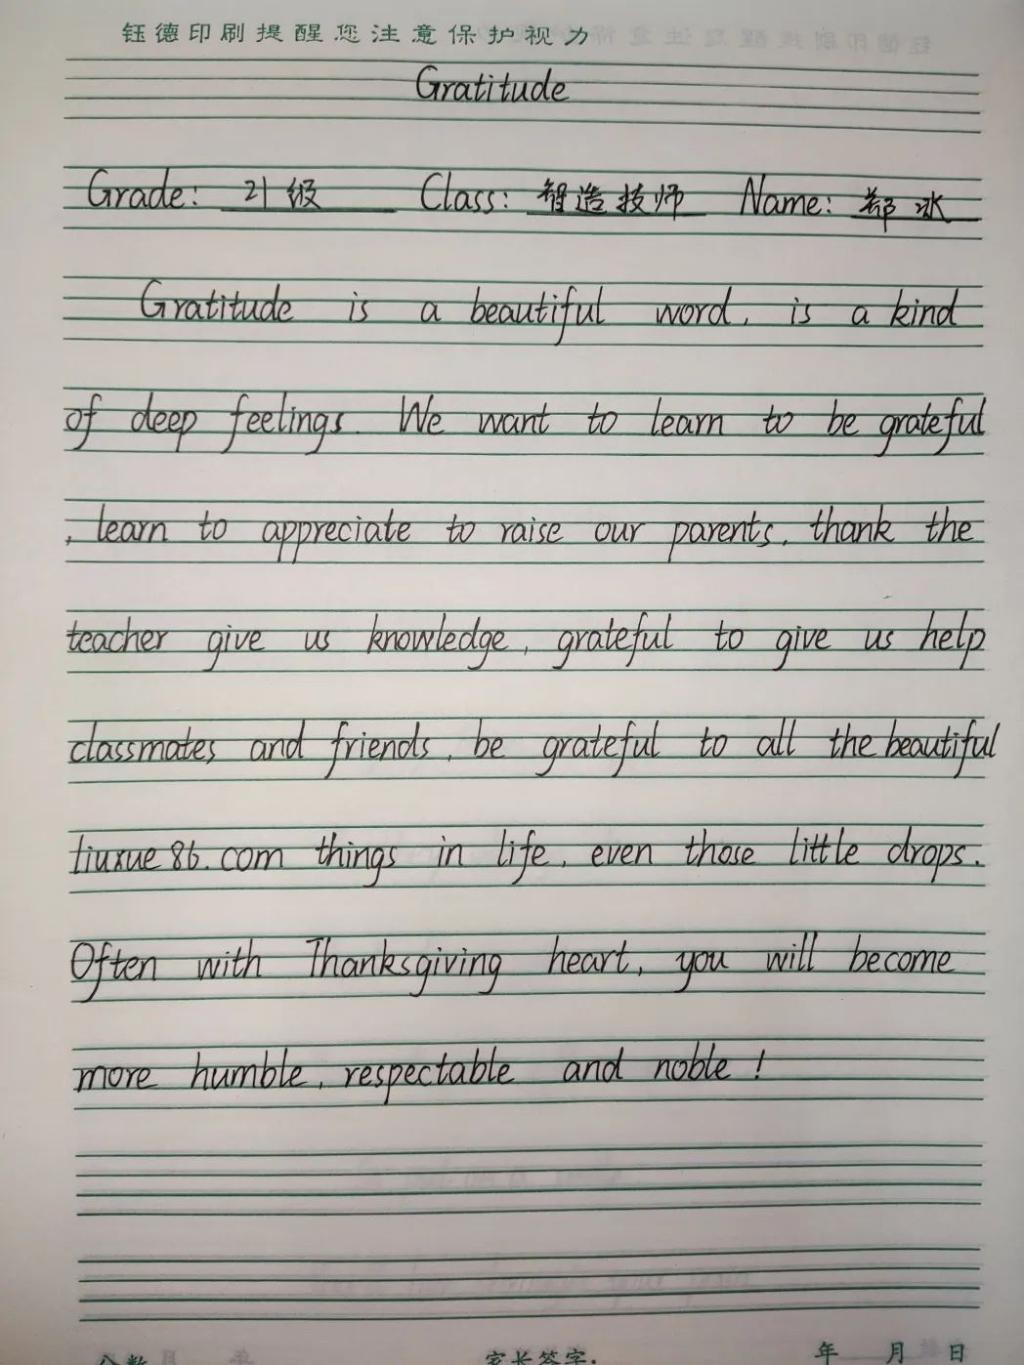 钰德印刷提醒您注意保护视力
Gratitude
Grade: 21级 Class: 智造技师 Name: 郑冰
Gratitude is a beautiful word, is a kind
of deep feelings. We want to learn to be grateful
, learn to appreciate to raise our parents, thank the
teacher give us knowledge, grateful to give us help
classmates and friends, be grateful to all the beautiful
liuxue86.com things in life, even those little drops.
Often with Thanksgiving heart, you will become
more humble, respectable and noble!
家长签字: 年 月 日